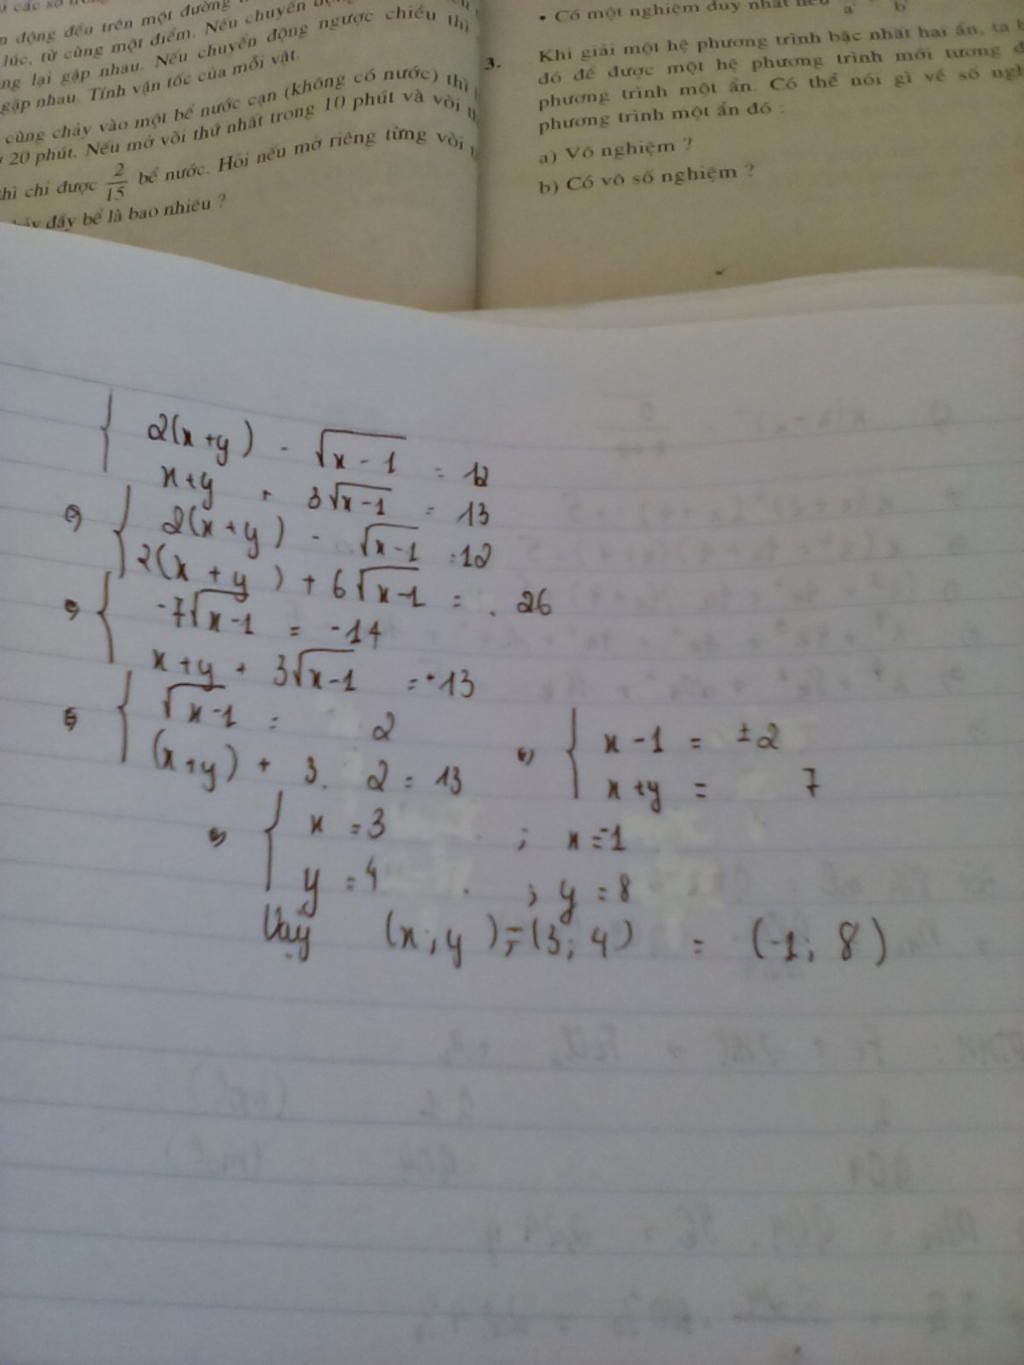 n động đều trên một đường
lúc, từ cùng một điểm. Nếu chuyển động
ng lại gặp nhau. Nếu chuyển động ngược chiều thì
gặp nhau. Tính vận tốc của mỗi vật.
cùng chảy vào một bể nước cạn (không có nước) thì
20 phút. Nếu mở vòi thứ nhất trong 10 phút và vòi
thì chỉ được 2/15 bể nước. Hỏi nếu mở riêng từng vòi
đầy bể là bao nhiêu ?
• Có một nghiệm duy nhất nếu a b
3. Khi giải một hệ phương trình bậc nhất hai ẩn, ta
đó để được một hệ phương trình mới tương
phương trình một ẩn. Có thể nói gì về số
phương trình một ẩn đó :
a) Vô nghiệm ?
b) Có vô số nghiệm ?
{ 2(x+y) - √x-1 = 12
x+y + 3√x-1 = 13
⇔ { 2(x+y) - √x-1 = 12
2(x+y) + 6√x-1 = 26
⇔ { -7√x-1 = -14
x+y + 3√x-1 = 13
⇔ { √x-1 = 2
(x+y) + 3. 2 = 13
⇔ { x-1 = ±2
x+y = 7
⇔ { x = 3 ; x = -1
y = 4 ; y = 8
Vậy (x;y) = (3; 4) = (-1; 8)